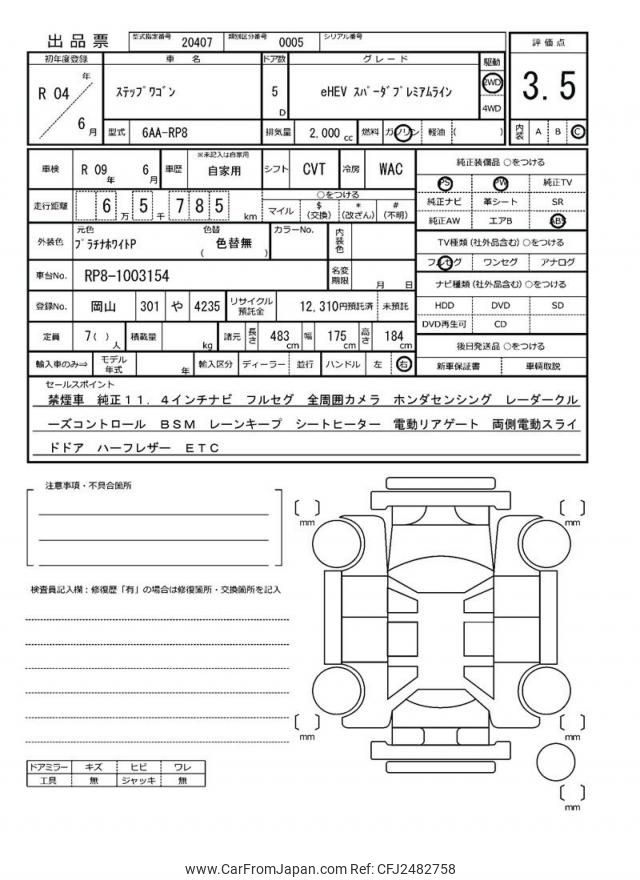 出品票 型式指定番号 20407 類別区分番号 0005 シリアル番号
初年度登録 車名 ドア数 グレード 駆動 評価点
R 04 年 6 月
ステップワゴン 5 D eHEV スパーダプレミアムライン 2WD 4WD
3.5
型式 6AA-RP8 排気量 2,000 cc 燃料 ガソリン 軽油 ( )
内装 A B C
車検 R 09 年 6 月 車歴 ※未記入は自家用 自家用 シフト CVT 冷房 WAC
純正装備品 ○をつける
PS PW 純正TV
走行距離 6 万 5 千 7 8 5 km
○をつける
マイル $ (交換) * (改ざん) # (不明)
純正ナビ 革シート SR
純正AW エアB ABS
外装色 元色 プラチナホワイトP 色替 ( 色替無 ) カラーNo. 内装色
TV種類 (社外品含む) ○をつける
フルセグ ワンセグ アナログ
車台No. RP8-1003154 名変期限 月 日
ナビ種類 (社外品含む) ○をつける
登録No. 岡山 301 や 4235 リサイクル預託金 12,310 円預託済 未預託
HDD DVD SD
DVD再生可 CD
定員 7( ) 人 積載量 kg 諸元 長さ 483 cm 幅 175 cm 高さ 184 cm
後日発送品 ○をつける
輸入車のみ⇒ モデル年式 年 輸入区分 ディーラー 並行 ハンドル 左 右
新車保証書 車輌取説
セールスポイント
禁煙車 純正11．4インチナビ フルセグ 全周囲カメラ ホンダセンシング レーダークル
ーズコントロール BSM レーンキープ シートヒーター 電動リアゲート 両側電動スライ
ドドア ハーフレザー ETC
注意事項・不具合箇所
検査員記入欄：修復歴「有」の場合は修復箇所・交換箇所を記入
mm
mm
mm
mm
mm
ドアミラー キズ ヒビ ワレ
工具 無 ジャッキ 無
www.CarFromJapan.com Ref: CFJ2482758